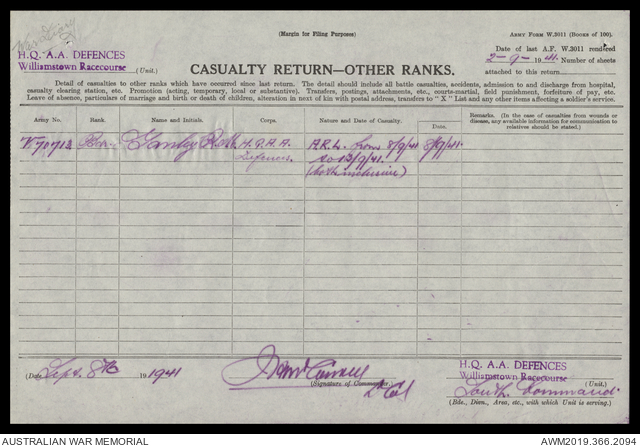 (Margin for Filing Purposes)
ARMY FORM W.3011 (BOOKS OF 100).
H.Q. A.A. DEFENCES
Williamstown Racecourse (Unit.)
Date of last A.F. W.3011 rendered
2-9-1941. Number of sheets
attached to this return
CASUALTY RETURN—OTHER RANKS.
Detail of casualties to other ranks which have occurred since last return. The detail should include all battle casualties, accidents, admission to and discharge from hospital,
casualty clearing station, etc. Promotion (acting, temporary, local or substantive). Transfers, postings, attachments, etc., courts-martial, field punishment, forfeiture of pay, etc.
Leave of absence, particulars of marriage and birth or death of children, alteration in next of kin with postal address, transfers to "X" List and any other items affecting a soldier's service.
Army No. Rank. Name and Initials. Corps. Nature and Date of Casualty. Date. Remarks. (In the case of casualties from wounds or
disease, any available information for communication to
relatives should be given.)
V70713 H.Q.A.A. A.R.L. from 8/9/41 8/9/41.
Defences. to 13/9/41.
(both inclusive)
(Date) Sept. 8th 1941
(Signature of Commander)
Lt Col
H.Q. A.A. DEFENCES
Williamstown Racecourse (Unit.)
South. Command
(Bde., Divn., Area, etc., with which Unit is serving.)
AUSTRALIAN WAR MEMORIAL
AWM2019.366.2094